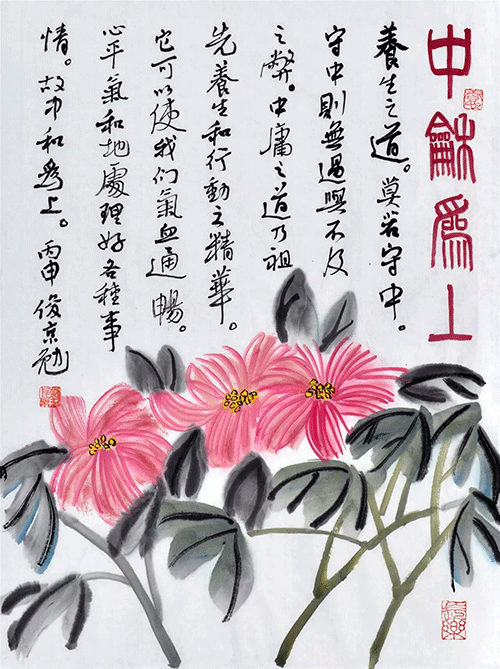 中龢為上
養生之道。莫若守中。
守中則無過與不及
之弊。中庸之道乃祖
先養生和行動之精華。
它可以使我们氣血通暢。
心平氣和地處理好各種事
情。故中和為上。丙申俊京勉